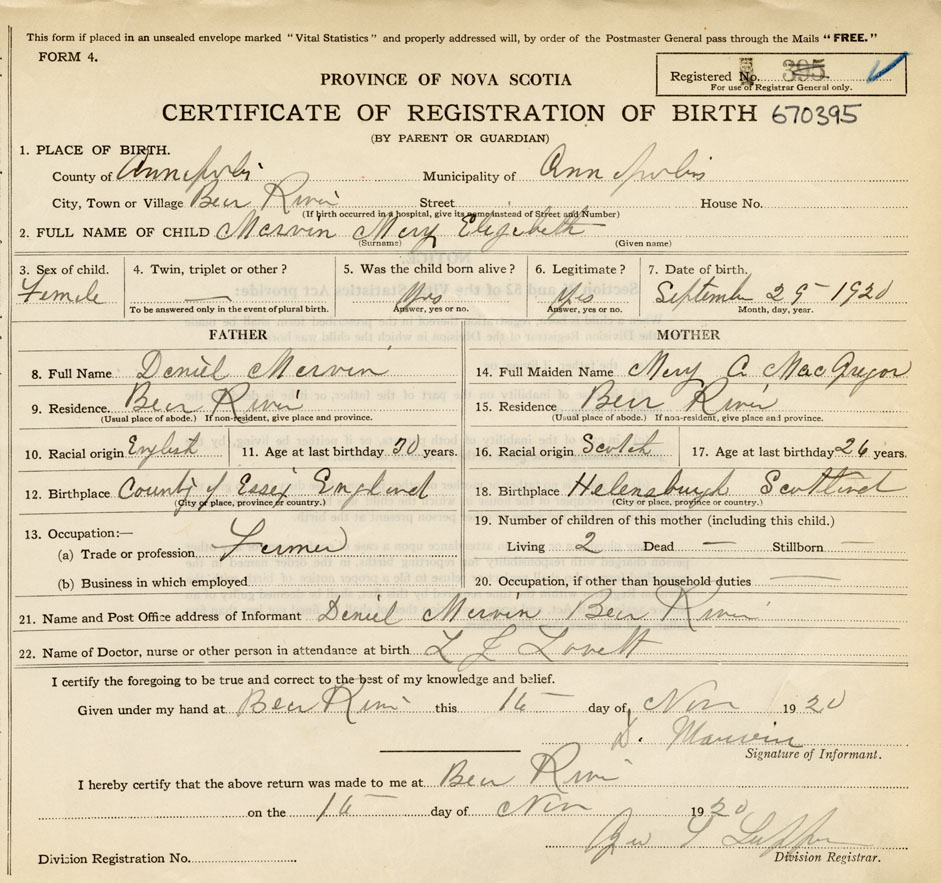 This form if placed in an unsealed envelope marked "Vital Statistics" and properly addressed will, by order of the Postmaster General pass through the Mails "FREE."
FORM 4.
Registered No. 395
For use of Registrar General only.
PROVINCE OF NOVA SCOTIA
CERTIFICATE OF REGISTRATION OF BIRTH 670395
(BY PARENT OR GUARDIAN)
1. PLACE OF BIRTH.
County of Annapolis Municipality of Annapolis
City, Town or Village Bear River Street House No.
(If birth occurred in a hospital, give its name instead of Street and Number)
2. FULL NAME OF CHILD Marvin Mary Elizabeth
(Surname) (Given name)
3. Sex of child. 4. Twin, triplet or other? 5. Was the child born alive? 6. Legitimate? 7. Date of birth.
Female — Yes Yes September 29 1920
To be answered only in the event of plural birth. Answer, yes or no. Answer, yes or no. Month, day, year.
FATHER
8. Full Name Daniel Marvin
9. Residence. Bear River
(Usual place of abode.) If non-resident, give place and province.
10. Racial origin English 11. Age at last birthday 30 years.
12. Birthplace County of Essex England
(City or place, province or country.)
13. Occupation:—
(a) Trade or profession Farmer
(b) Business in which employed
MOTHER
14. Full Maiden Name Mary A MacGregor
15. Residence Bear River
(Usual place of abode.) If non-resident, give place and province.
16. Racial origin Scotch 17. Age at last birthday 26 years.
18. Birthplace Helensburgh Scotland
(City or place, province or country.)
19. Number of children of this mother (including this child.)
Living 2 Dead — Stillborn —
20. Occupation, if other than household duties —
21. Name and Post Office address of Informant Daniel Marvin Bear River
22. Name of Doctor, nurse or other person in attendance at birth L J Lovett
I certify the foregoing to be true and correct to the best of my knowledge and belief.
Given under my hand at Bear River this 16 day of Nov 1920
D. Marvin
Signature of Informant.
I hereby certify that the above return was made to me at Bear River
on the 16 day of Nov 1920
Division Registrar.
Division Registration No.